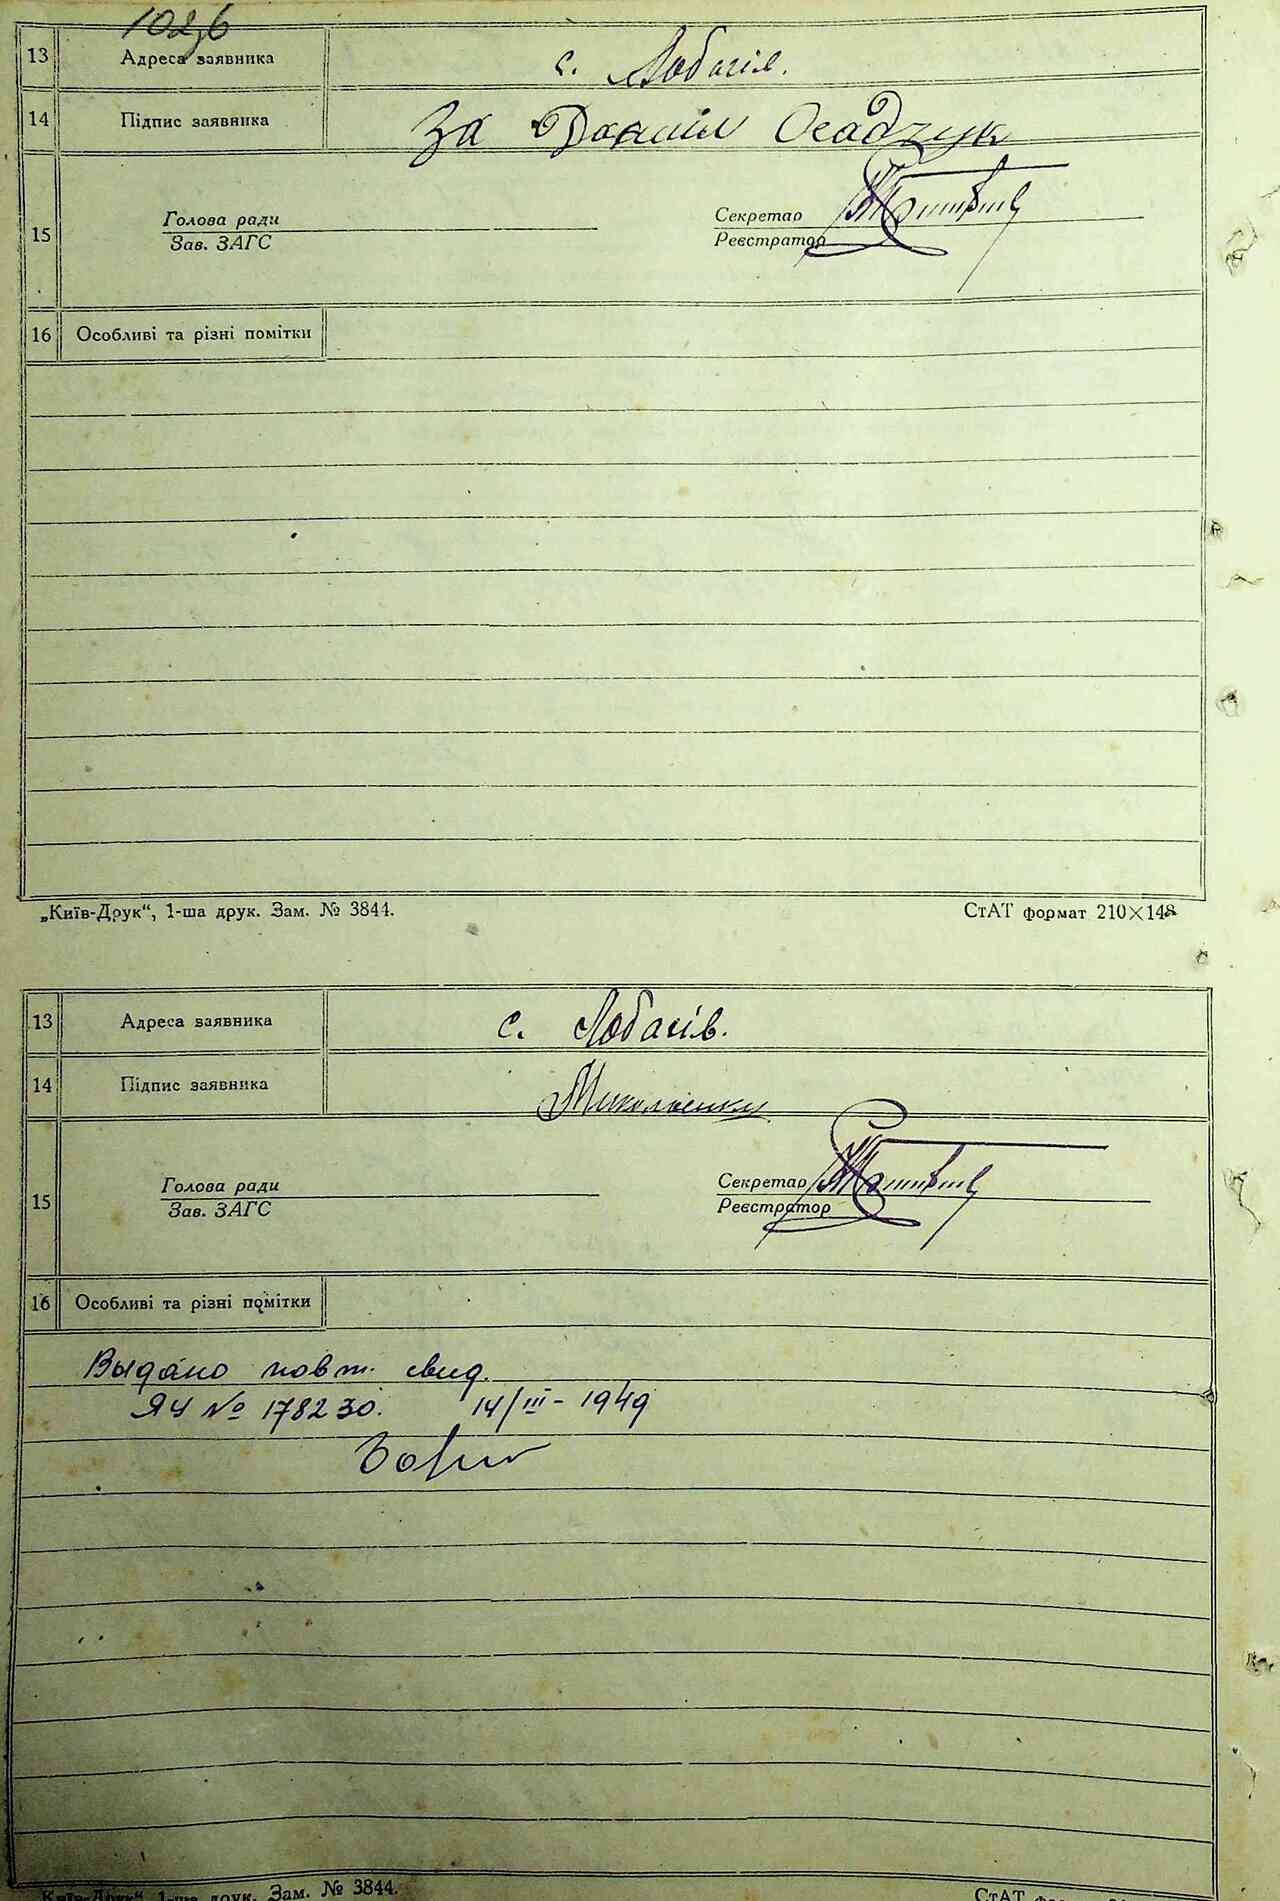 13 Адреса заявника с. Лобачів.
14 Підпис заявника За Осадчук
15 Голова ради Секретар
Зав. ЗАГС Реєстратор
16 Особливі та різні помітки
„Київ-Друк“, 1-ша друк. Зам. № 3844. СтАТ формат 210×148
13 Адреса заявника с. Лобачів.
14 Підпис заявника Миколаенко
15 Голова ради Секретар
Зав. ЗАГС Реєстратор
16 Особливі та різні помітки
Выдано повт. свид.
ЯЧ № 178230. 14/III - 1949
„Київ-Друк“, 1-ша друк. Зам. № 3844. СтАТ